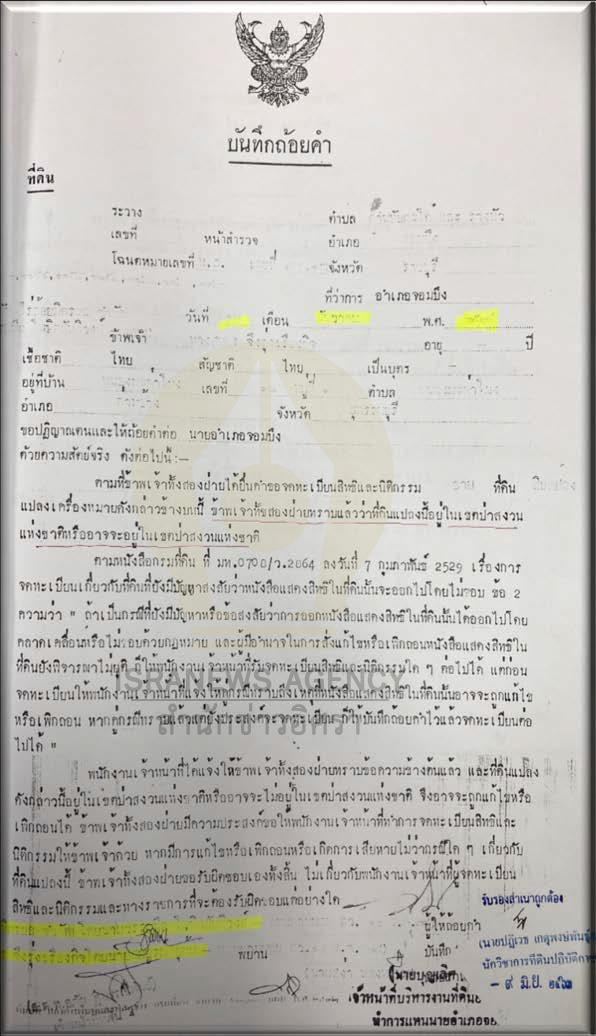 บันทึกถ้อยคำ
ที่ดิน
ระวาง ตำบล
เลขที่ หน้าสำรวจ อำเภอ
โฉนดหมายเลขที่ จังหวัด ราชบุรี
ที่ว่าการ อำเภอจอมบึง
วันที่ เดือน พ.ศ.
ข้าพเจ้า อายุ ปี
เชื้อชาติ ไทย สัญชาติ ไทย เป็นบุตร
อยู่ที่บ้าน เลขที่ ตำบล
อำเภอ จังหวัด
ขอปฏิญาณตนและให้ถ้อยคำต่อ นายอำเภอจอมบึง
ด้วยความสัตย์จริง ดังต่อไปนี้:—
ตามที่ข้าพเจ้าทั้งสองฝ่ายได้ยื่นคำขอจดทะเบียนสิทธิและนิติกรรม ขาย ที่ดิน
แปลงเครื่องหมายดังกล่าวข้างบนนี้ ข้าพเจ้าทั้งสองฝ่ายทราบแล้วว่าที่ดินแปลงนี้อยู่ในเขตป่าสงวน
แห่งชาติหรืออาจจะอยู่ในเขตป่าสงวนแห่งชาติ
ตามหนังสือกรมที่ดิน ที่ มท.0700/ว.2064 ลงวันที่ 7 กุมภาพันธ์ 2529 เรื่องการ
จดทะเบียนเกี่ยวกับที่ดินที่ยังมีปัญหาสงสัยว่าหนังสือแสดงสิทธิในที่ดินนั้นจะออกไปโดยไม่ชอบ ข้อ 2
ความว่า " ถ้าเป็นกรณีที่ยังมีปัญหาหรือข้อสงสัยว่าการออกหนังสือแสดงสิทธิในที่ดินนั้นได้ออกไปโดย
คลาดเคลื่อนหรือไม่ชอบด้วยกฎหมาย และผู้มีอำนาจในการสั่งแก้ไขหรือเพิกถอนหนังสือแสดงสิทธิใน
ที่ดินยังพิจารณาไม่ยุติ ก็ให้พนักงานเจ้าหน้าที่รับจดทะเบียนสิทธิและนิติกรรมใด ๆ ต่อไปได้ แต่ก่อน
จดทะเบียนให้พนักงานเจ้าหน้าที่แจ้งให้คู่กรณีทราบถึงเหตุที่หนังสือแสดงสิทธิในที่ดินนั้นอาจจะถูกแก้ไข
ISRANEWS AGENCY
หรือเพิกถอน หากคู่กรณีทราบแล้วแต่ยังประสงค์จะจดทะเบียน ก็ให้บันทึกถ้อยคำไว้แล้วจดทะเบียนต่อ
สำนักข่าวอิศรา
ไปได้ "
พนักงานเจ้าหน้าที่ได้แจ้งให้ข้าพเจ้าทั้งสองฝ่ายทราบข้อความข้างต้นแล้ว และที่ดินแปลง
ดังกล่าวนี้อยู่ในเขตป่าสงวนแห่งชาติหรืออาจจะไม่อยู่ในเขตป่าสงวนแห่งชาติ จึงอาจจะถูกแก้ไขหรือ
เพิกถอนได้ ข้าพเจ้าทั้งสองฝ่ายมีความประสงค์ขอให้พนักงานเจ้าหน้าที่ทำการจดทะเบียนสิทธิและ
นิติกรรมให้ข้าพเจ้าด้วย หากมีการแก้ไขหรือเพิกถอนหรือเกิดการเสียหายไม่ว่ากรณีใด ๆ เกี่ยวกับ
ที่ดินแปลงนี้ ข้าพเจ้าทั้งสองฝ่ายขอรับผิดชอบเองทั้งสิ้น ไม่เกี่ยวกับพนักงานเจ้าหน้าที่ผู้จดทะเบียน
สิทธิและนิติกรรมและทางราชการที่จะต้องรับผิดชอบแต่อย่างใด
รับรองสำเนาถูกต้อง
ผู้ให้ถ้อยคำ
พยาน บันทึก
นักวิชาการที่ดินปฏิบัติการ
- ๙ มิ.ย. ๒๕๖๓
เจ้าหน้าที่บริหารงานที่ดิน
ทำการแทนนายอำเภอจอมบึง